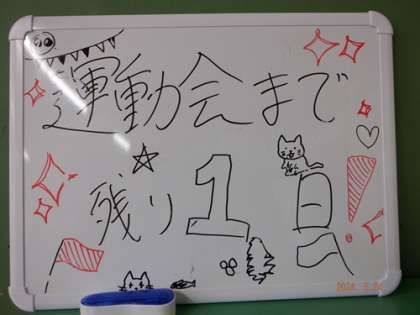 運動会まで
残り1日!
2024. 5.24